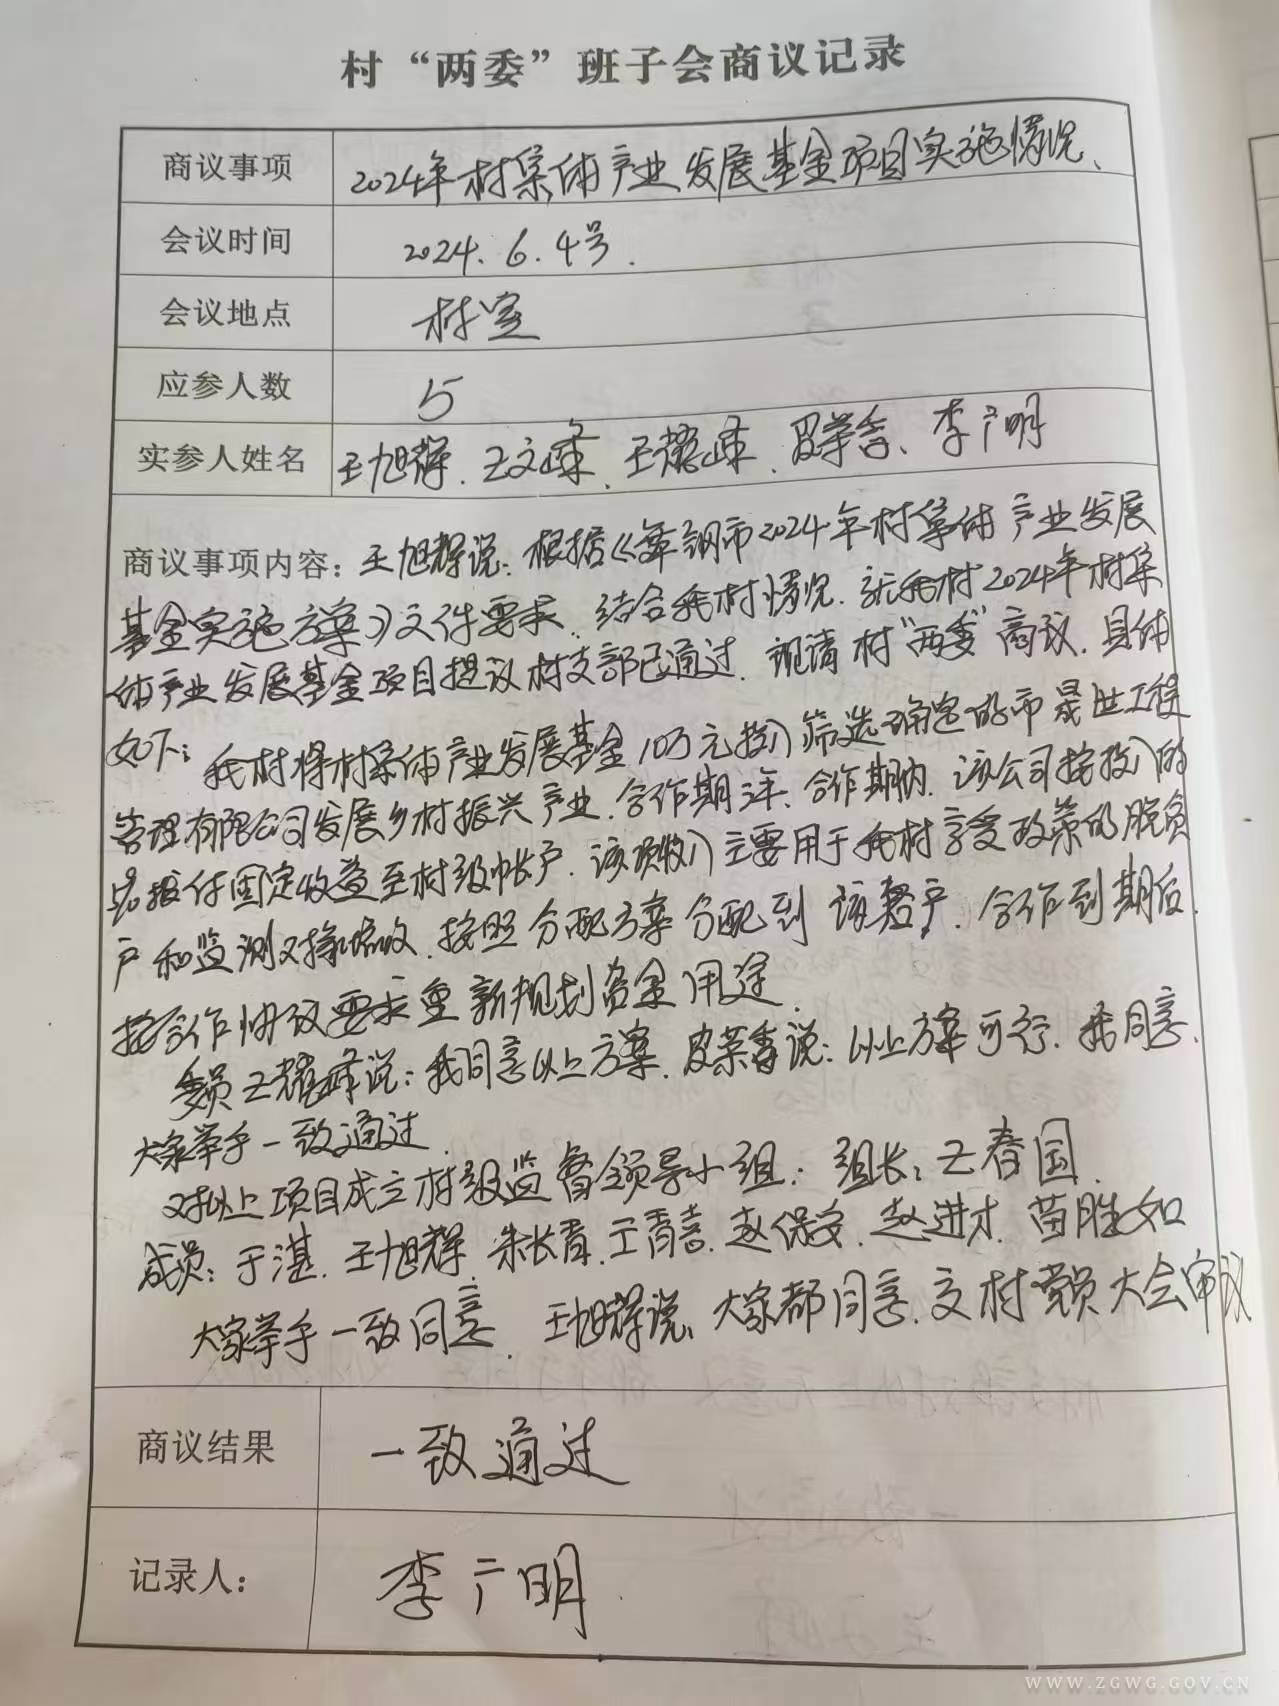 村“两委”班子会商议记录
商议事项 2024年村集体产业发展基金项目实施情况、
会议时间 2024.6.4号.
会议地点 村室
应参人数 5
实参人姓名 王旭辉、王文峰、王耀峰、皮荣香、李广明
商议事项内容：王旭辉说：根据《舞钢市2024年村集体产业发展
基金实施方案》文件要求，结合我村情况，就我村2024年村集
体产业发展基金项目提议村支部已通过，现请村“两委”商议，具体
如下：我村将村集体产业发展基金10万元投入筛选确定的市晟世工程
管理有限公司发展乡村振兴产业，合作期三年，合作期内，该公司按投入的
报付固定收益至村级帐户，该项收入主要用于我村享受政策的脱贫
户和监测对象，按照分配方案分配到该户，合作到期后，
按合作协议要求重新规划资金用途.
委员王耀峰说：我同意以上方案，皮荣香说：以上方案可行，我同意.
大家举手一致通过.
对以上项目成立村级监督领导小组：组长：王春国
成员：于湛、王旭辉、朱长青、王青喜、赵保安、赵进才、苗胜如
大家举手一致同意，王旭辉说，大家都同意，交村党员大会审议
商议结果 一致通过
记录人： 李广明.
WWW.ZGWG.GOV.CN